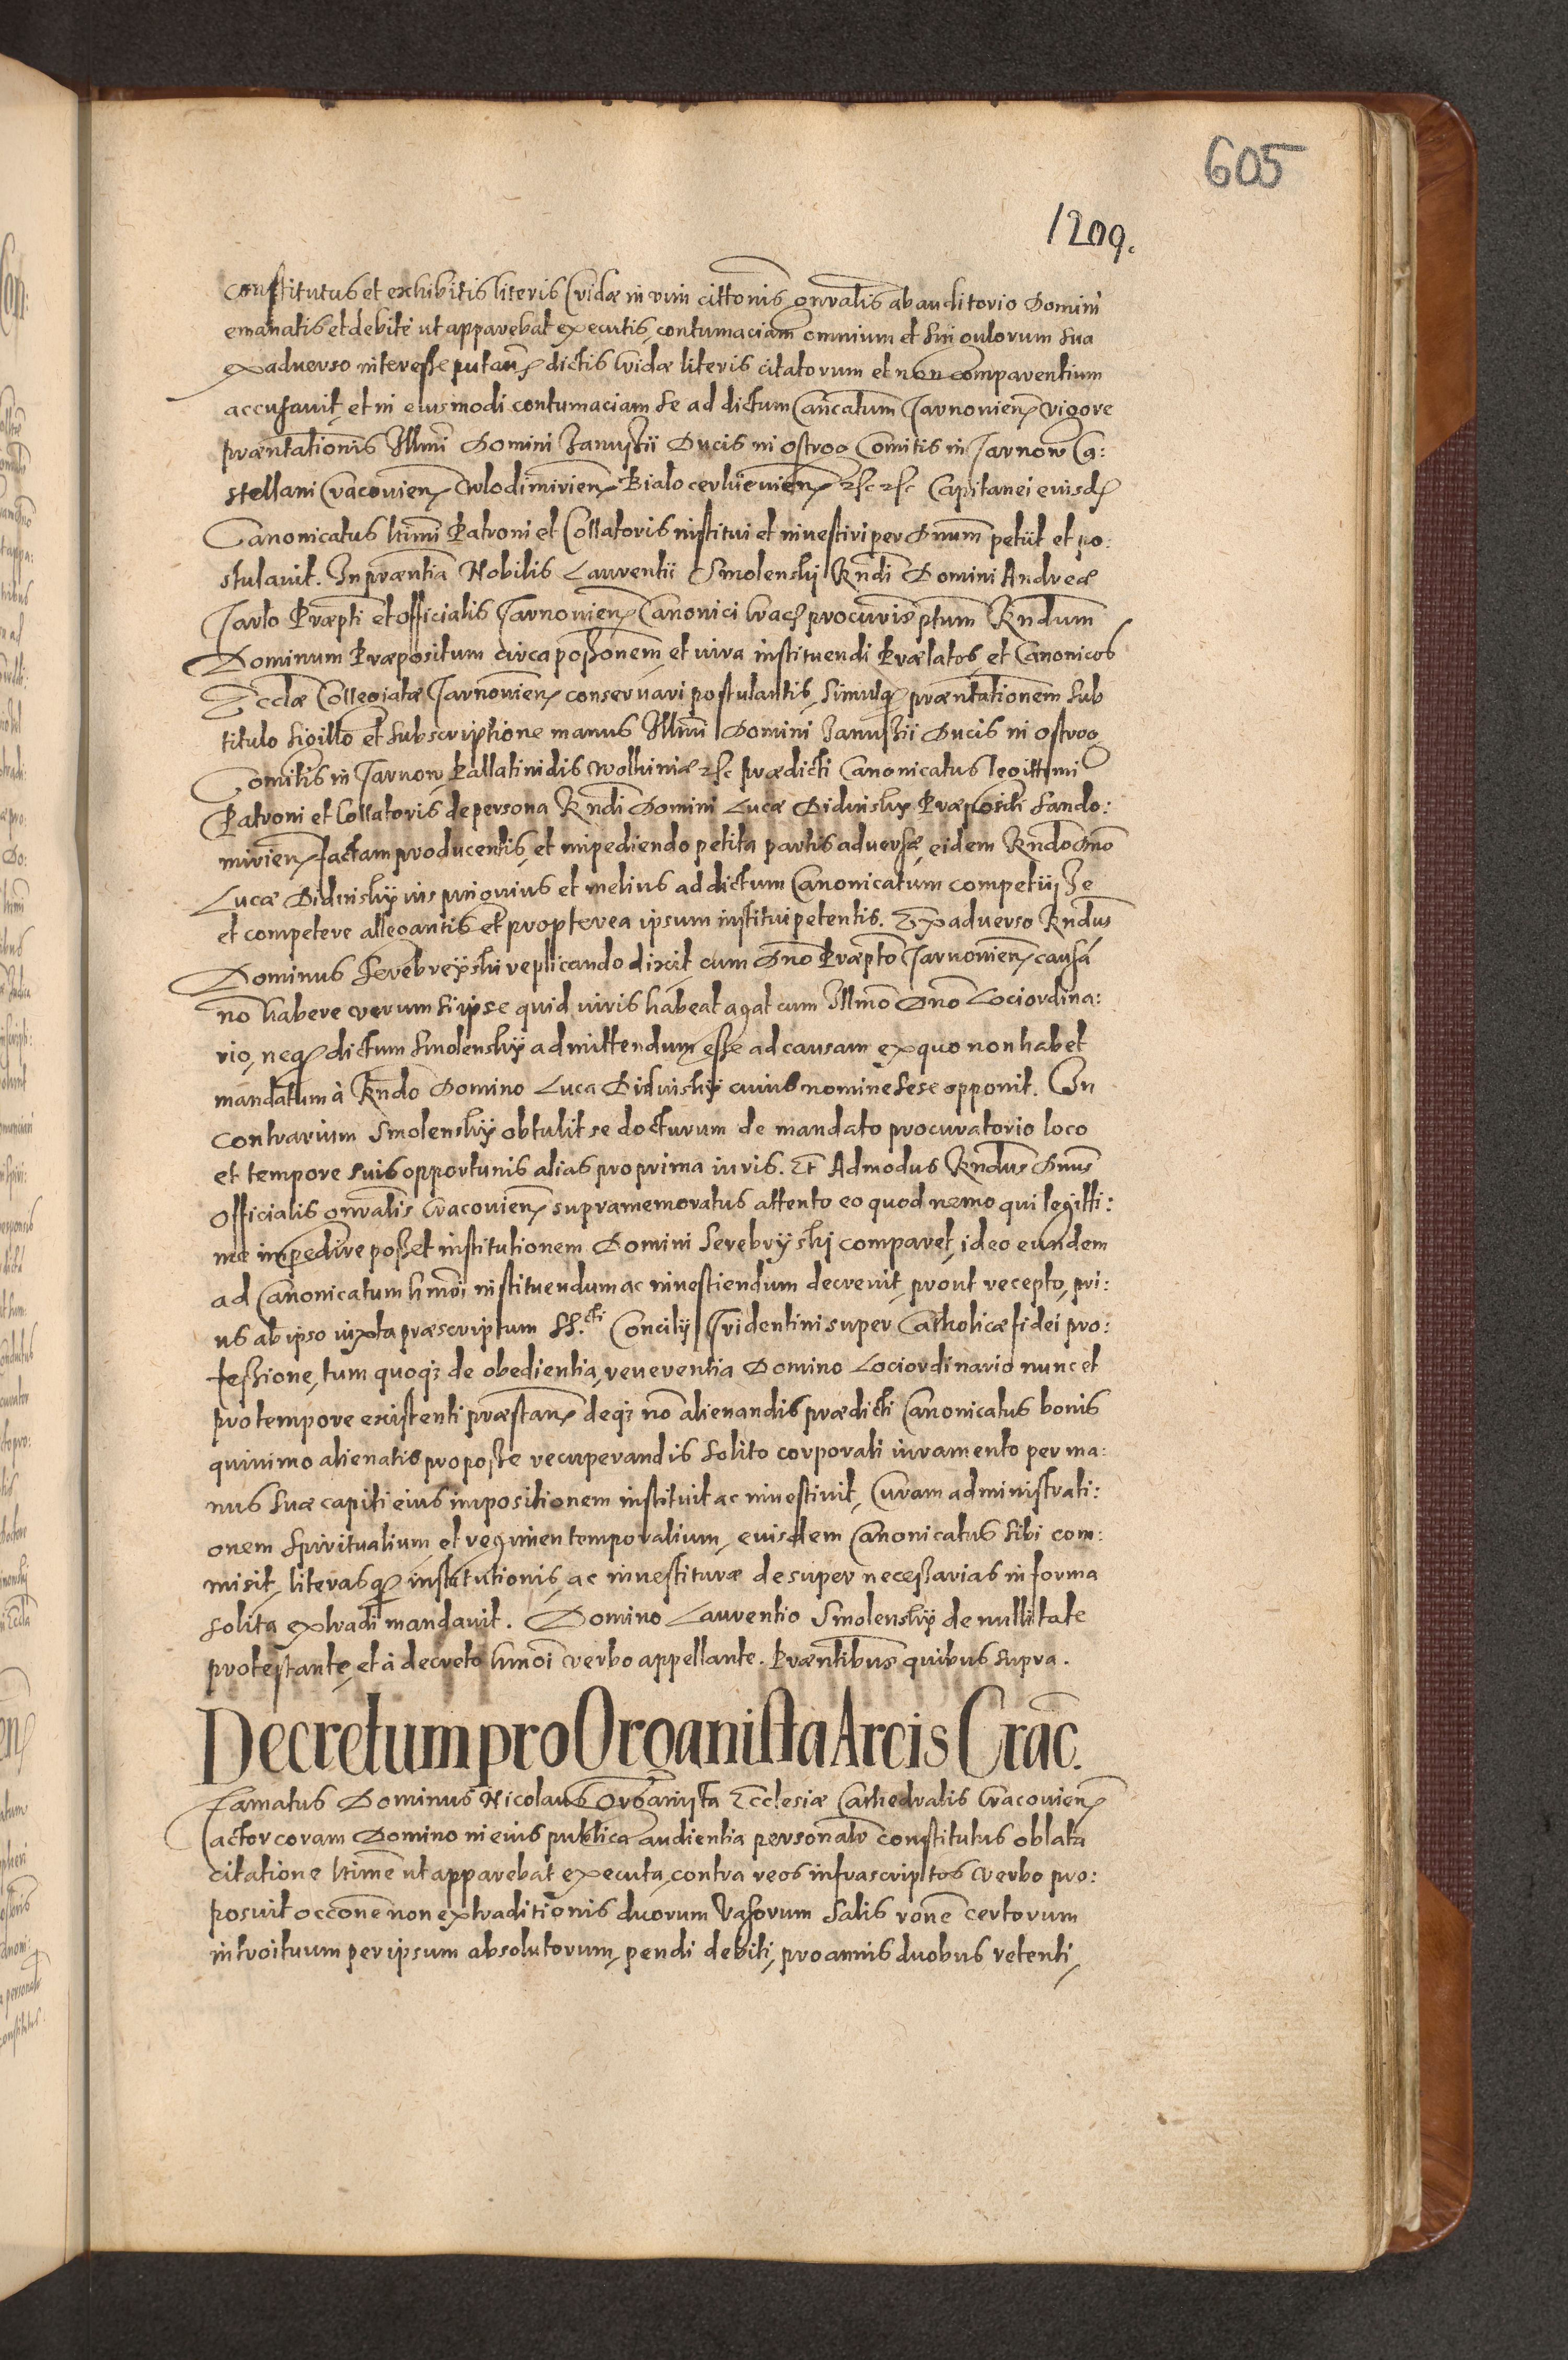 605
1209.
constitutus et exhibitis literis Cridæ in vim cittonis gnralis ab auditorio Domini
emanatis et debite ut apparebat executis, contumaciam omnium et singulorum sua
ex adverso interesse putan. dictis cridæ literis citatorum et non comparentium
accusavit, et in eiusmodi contumaciam se ad dictum Cancatum Tarnovien. vigore
præntationis Illmi Domini Janussii Ducis in Ostrog Comitis in Tarnow Ca:
stellani Cracovien. Wlodimirien. Bialocerkievien. etc etc Capitanei eiusd.
Canonicatus ltimi Patroni et Collatoris institui et investiri per Dnum petiit et po:
stulavit. In præntia Nobilis Laurentii Smolenskj Rndi Domini Andreæ
Tarlo Præpti et Officialis Tarnovien. Canonici Crac. procuris ptum Rndum
Dominum Præpositum circa possonem, et iura instituendi Prælatos et Canonicos
Ecclæ Collegiatæ Tarnovien. conservari postulantis, simulq. præntationem sub
titulo sigillo et subscriptione manus Illmi Domini Janussii Ducis in Ostrog
Comitis in Tarnow Pallatinidis Wolhiniæ etc prædicti Canonicatus legittimi
Patroni et Collatoris de persona Rndi Domini Lucæ Didinsky Præpositi Sando:
mirien. factam producentis, et impediendo petita partis adversæ, eidem Rndo Dno
Lucæ Didinskÿ ius pinguius et melius ad dictum Canonicatum competiisse
et competere allegantis et propterea ipsum institui petentis. Ex adverso Rndus
Dominus Serebreÿski replicando dixit cum Dno Præpto Tarnovien. causã
nõ habere verum si ipse quid iuris habeat agat cum Illmo Dno Lociordina:
rio, neq. dictum Smolenskÿ admittendum esse ad causam ex quo non habet
mandatum à Rndo Domino Luca Didinskÿ cuius nomine sese opponit. In
contrarium Smolenskÿ obtulit se docturum de mandato procuratorio loco
et tempore suis opportunis alias pro prima iuris. Et Admodus Rndus Dnus
Officialis gnralis Cracovien. supramemoratus attento eo quod nemo qui legitti:
me impedire posset institutionem Domini Serebryskj comparet, ideo eundem
ad Canonicatum hmõi instituendum ac investiendum decrevit, prout recepto, pri:
us ab ipso iuxta præscriptum SS.cti Concilij Tridentini super Catholicæ fidei pro:
fessione, tum quoq; de obedientia, reverentia Domino Lociordinario nunc et
pro tempore existenti præstan. deq; nõ alienandis prædicti Canonicatus bonis
quinimo alienatis pro posse recuperandis solito corporali iuramento per ma:
nus suæ capiti eius impositionem instituit ac investivit, Curam administrati:
onem spiritualium, et regimen temporalium, eiusdem Canonicatus sibi com:
misit, literasq. institutionis, ac investituræ desuper necessarias in forma
solita extradi mandavit. Domino Laurentio Smolenskÿ de nullitate
protestante, et à decreto hmõi verbo appellante. Præntibus quibus supra.
Decretum pro Organista Arcis Crac.
Famatus Dominus Nicolaus Organista Ecclesiæ Cathedralis Cracovien.
actor coram Domino in eius publica audientia personalr constitutus oblata
citatione ltime ut apparebat executa, contra reos infrascriptos verbo pro:
posuit occone non extraditionis duorum Vasorum Salis rone certorum
introituum per ipsum absolutorum, pendi debiti, pro annis duobus retenti,